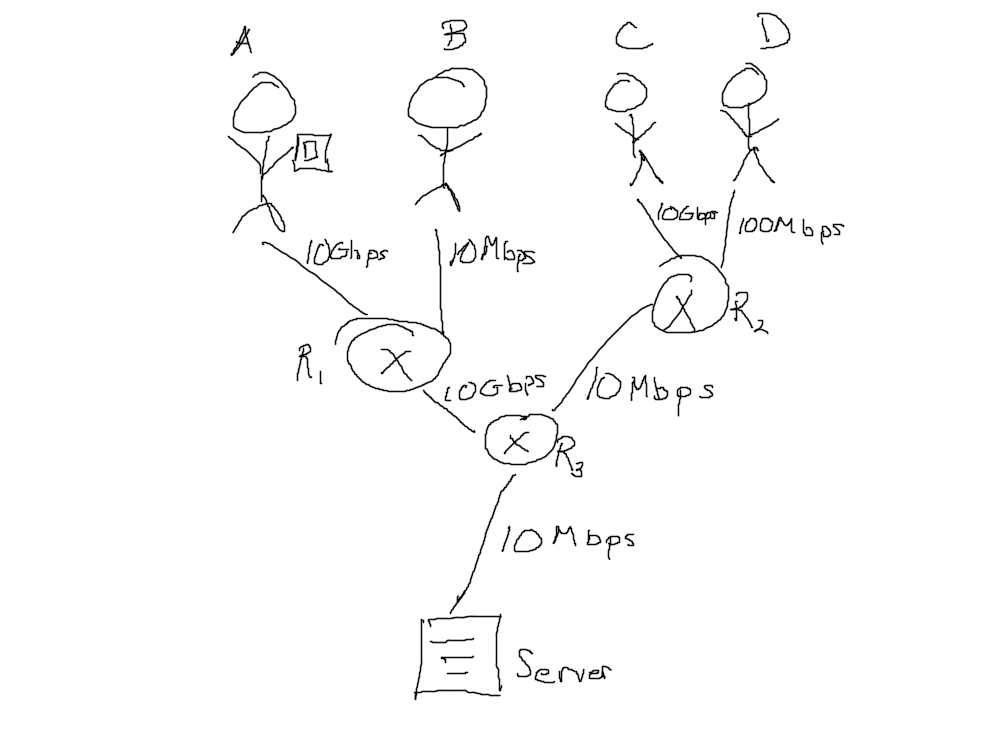 A
B
C
D
10Gbps
10Mbps
10Gbps
100Mbps
X
R2
R1
X
10Gbps
10Mbps
X
R3
10Mbps
Server